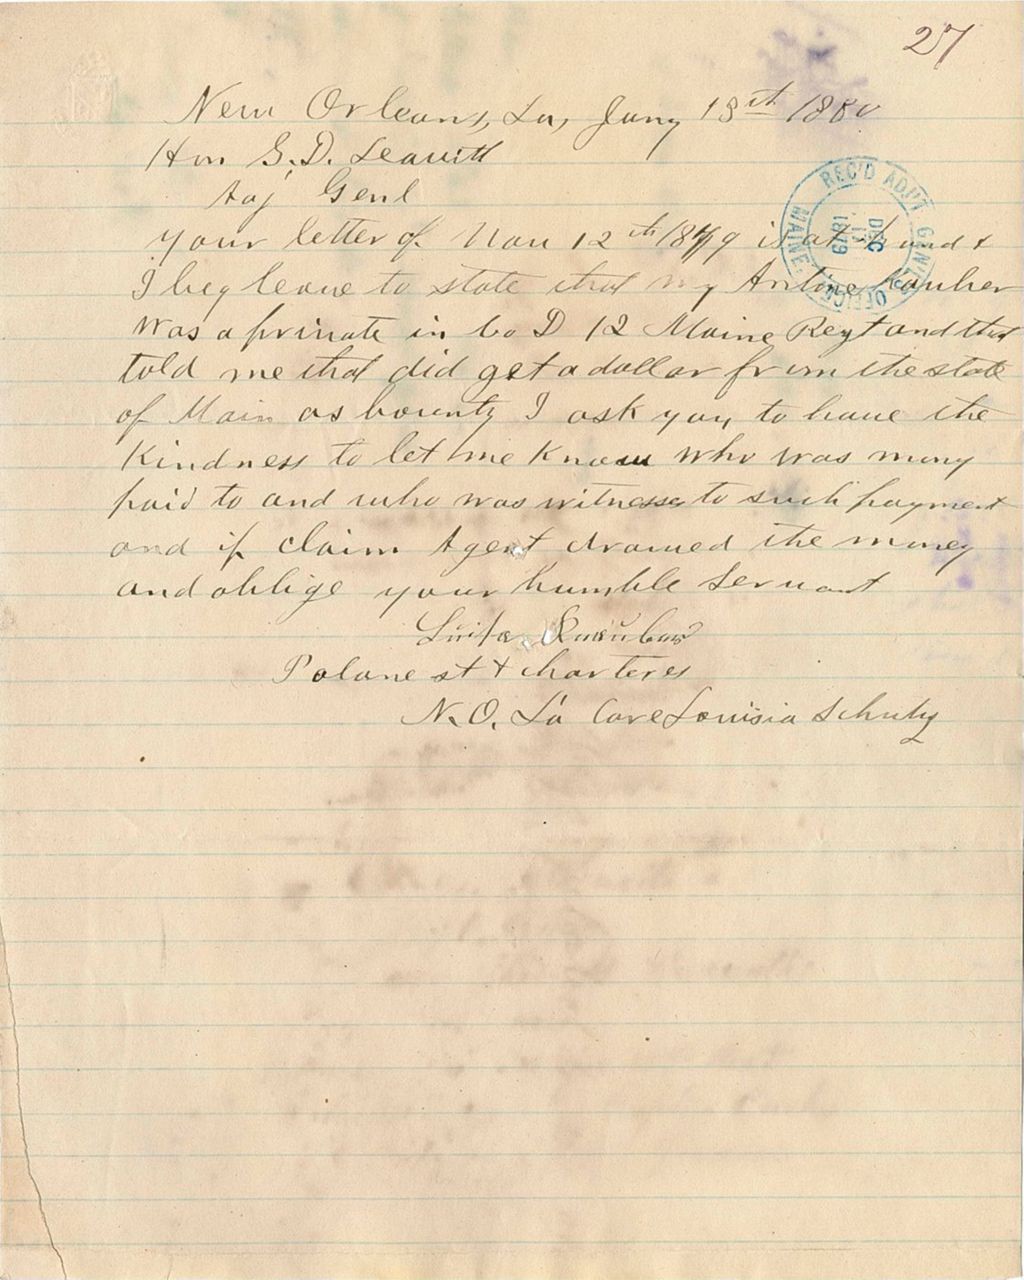 27
New Orleans, La, Jany 13th 1880
Hon G. D. Leavitt
Adj Genl
REC'D ADJ'T GEN'L'S OFFICE MAINE
DEC 1879
Your letter of Nov 12th 1879 is at hand &
I beg leave to state that my Antoine
was a private in Co D 12 Maine Regt and that
told me that did get a dollar from the state
of Main as bounty I ask you to have the
Kindness to let me know who was mony
paid to and who was witness to such payment
and if claim Agent drawed the money
and oblige your humble Servant
st & charteres
N. O. La Care Louisia Schuty